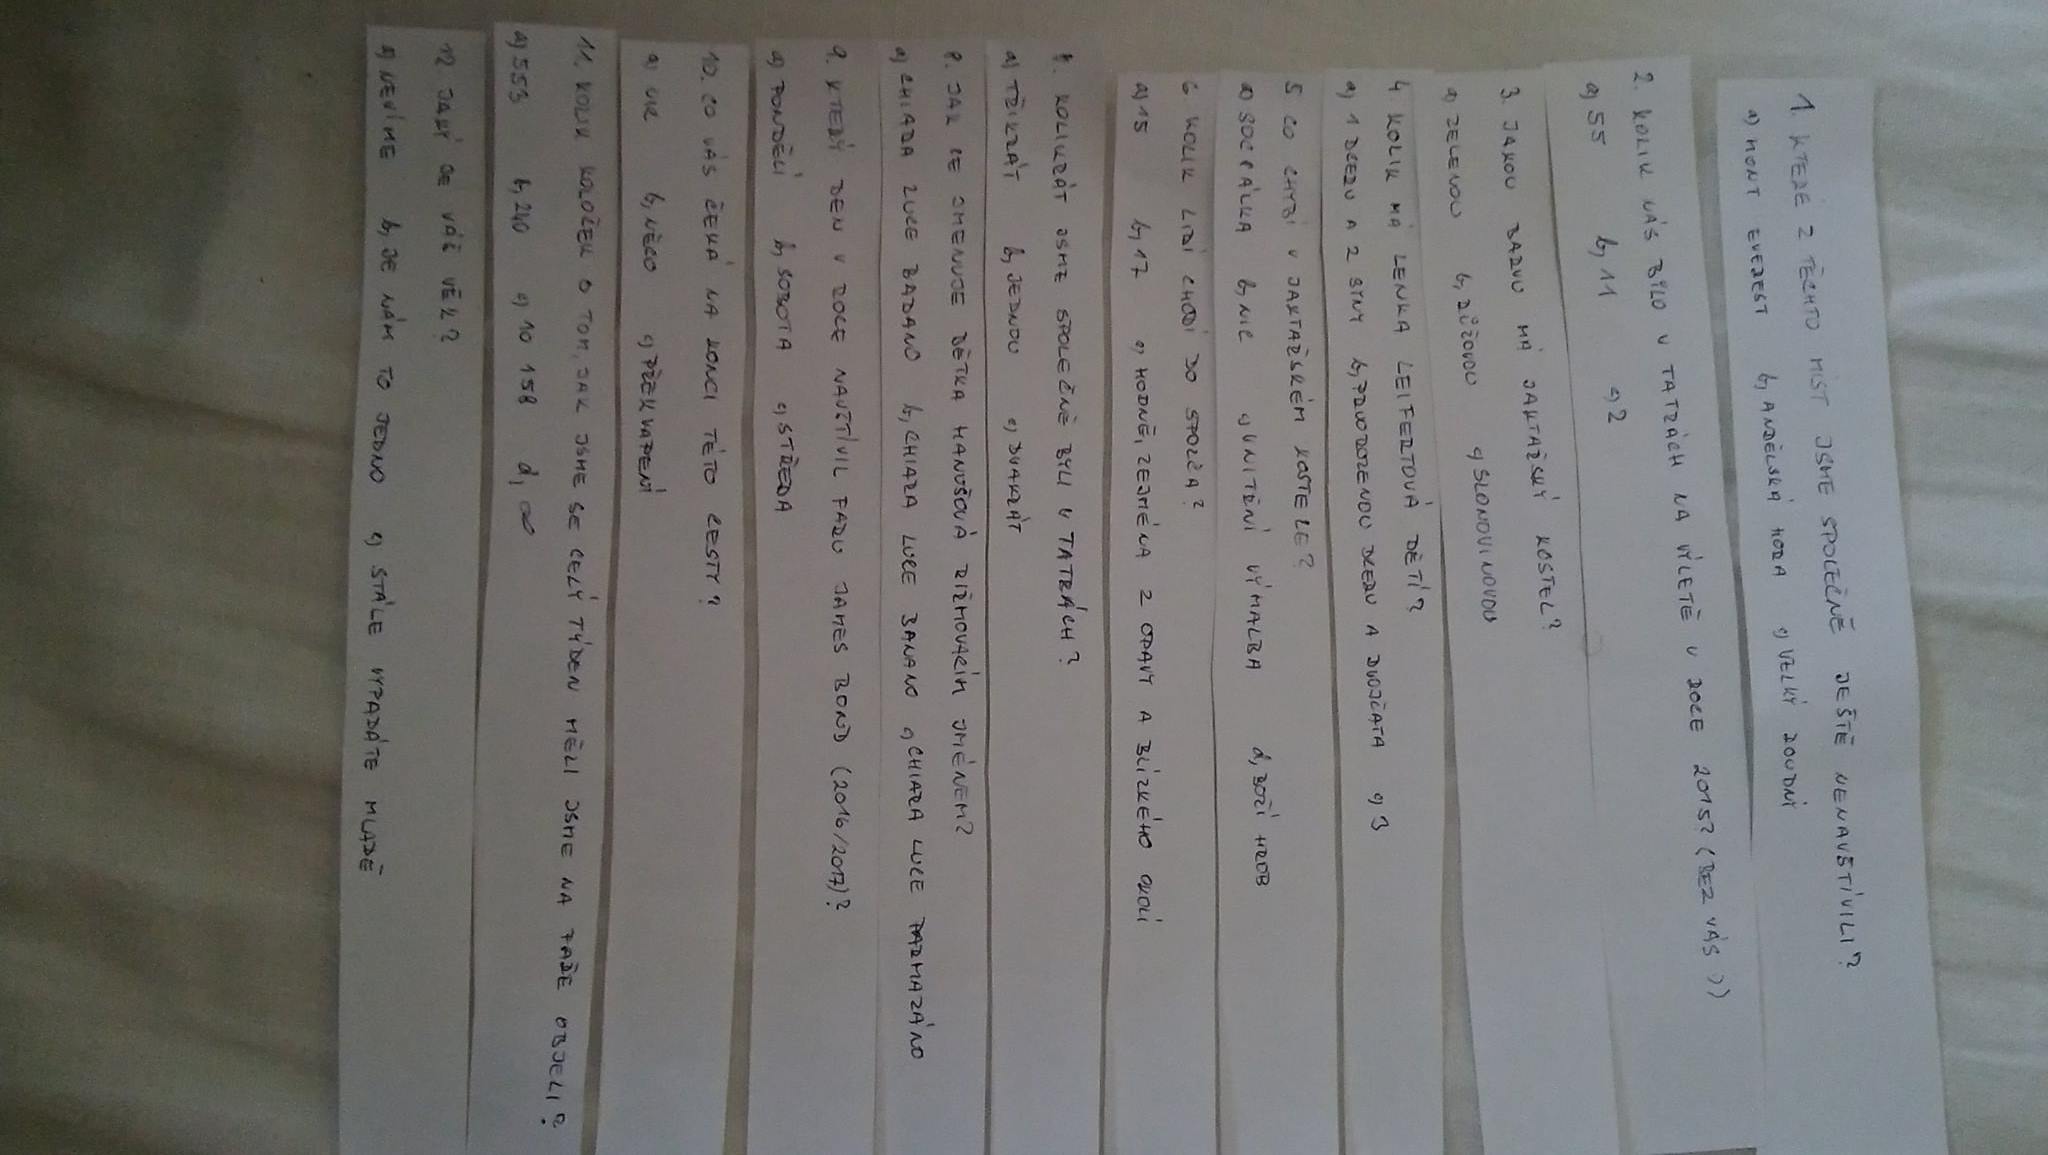 1. KTERÉ Z TĚCHTO MÍST JSME SPOLEČNĚ JEŠTĚ NENAVŠTÍVILI?
a) MONT EVEREST b, ANDĚLSKÁ HORA c) VELKÝ ROUDNÝ
2. KOLIK NÁS BYLO V TATRÁCH NA VÝLETĚ V ROCE 2015? (BEZ VÁS :))
a) 55 b, 11 c) 2
3. JAKOU BARVU MÁ JAKTAŘSKÝ KOSTEL?
a) ZELENOU b, RŮŽOVOU c) SLONOVINOVOU
4. KOLIK MÁ LENKA LEIFERTOVÁ DĚTÍ?
a) 1 DCERU A 2 SYNY b, PRVOROZENOU DCERU A DVOJČATA c) 3
5. CO CHYBÍ V JAKTAŘSKÉM KOSTELE?
a) SOCPÁLKA b, NIC c) VNITŘNÍ VÝMALBA d, BOŽÍ HROB
6. KOLIK LIDÍ CHODÍ DO SPOLČA?
a) 15 b, 17 c) HODNĚ, ZEJMÉNA Z OPAVY A BLÍZKÉHO OKOLÍ
7. KOLIKRÁT JSME SPOLEČNĚ BYLI V TATRÁCH?
a) TŘIKRÁT b, JEDNOU c) DVAKRÁT
8. JAK SE JMENUJE BĚTKA HANUŠOVÁ BIŘMOVACÍM JMÉNEM?
a) CHIARA LUCE BADANO b, CHIARA LUCE BANANO c) CHIARA LUCE PARMAZÁNO
9. KTERÝ DEN V ROCE NAVŠTÍVIL FARU JAMES BOND (2016/2017)?
a) PONDĚLÍ b, SOBOTA c) STŘEDA
10. CO VÁS ČEKÁ NA KONCI TÉTO CESTY?
a) UK b, NĚCO c) PŘEKVAPENÍ
11. KOLIK KOLEČEK O TOM, JAK JSME SE CELÝ TÝDEN MĚLI JSME NA FAŘE OBJELI?
a) 553 b, 240 c) 10 158 d, ∞
12. JAKÝ JE VÁŠ VĚK?
a) NEVÍME b, JE NÁM TO JEDNO c) STÁLE VYPADÁTE MLADĚ